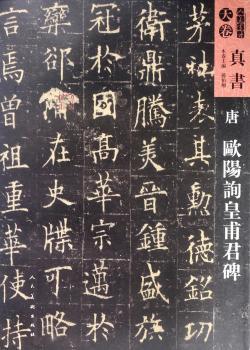 真書
唐
歐陽詢皇甫君碑
天卷
茅社表其勳德銘功
衛鼎騰美晉鍾盛族
冠於國高華宗邁於
欒郤備在史牒可略
言焉曾祖重華使持